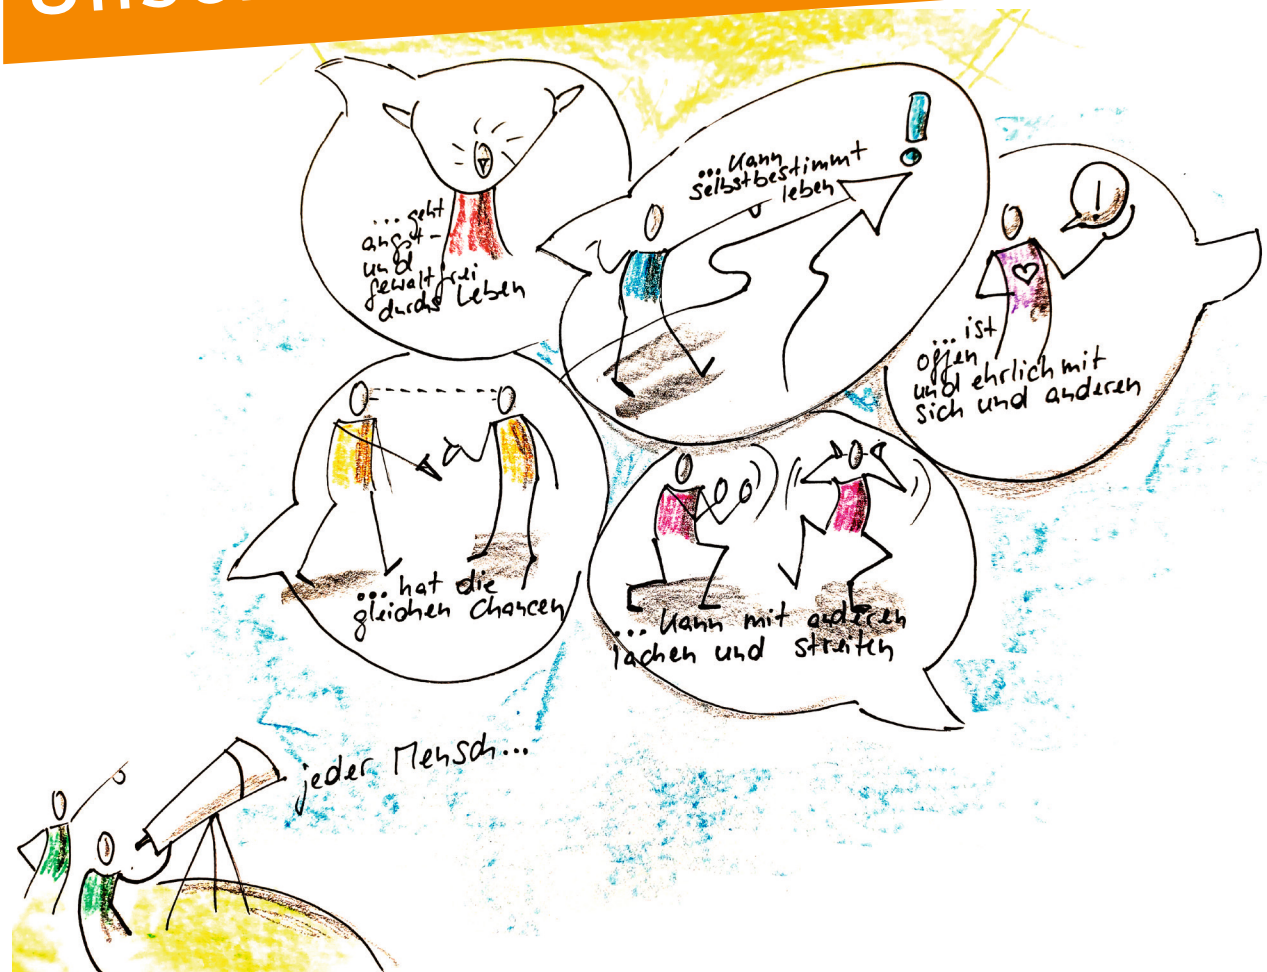 ... geht
angst-
und
gewaltfrei
durchs Leben
... kann
selbstbestimmt
leben
!
... ist
offen
und ehrlich mit
sich und anderen
... hat die
gleichen Chancen
... kann mit anderen
lachen und streiten
jeder Mensch...